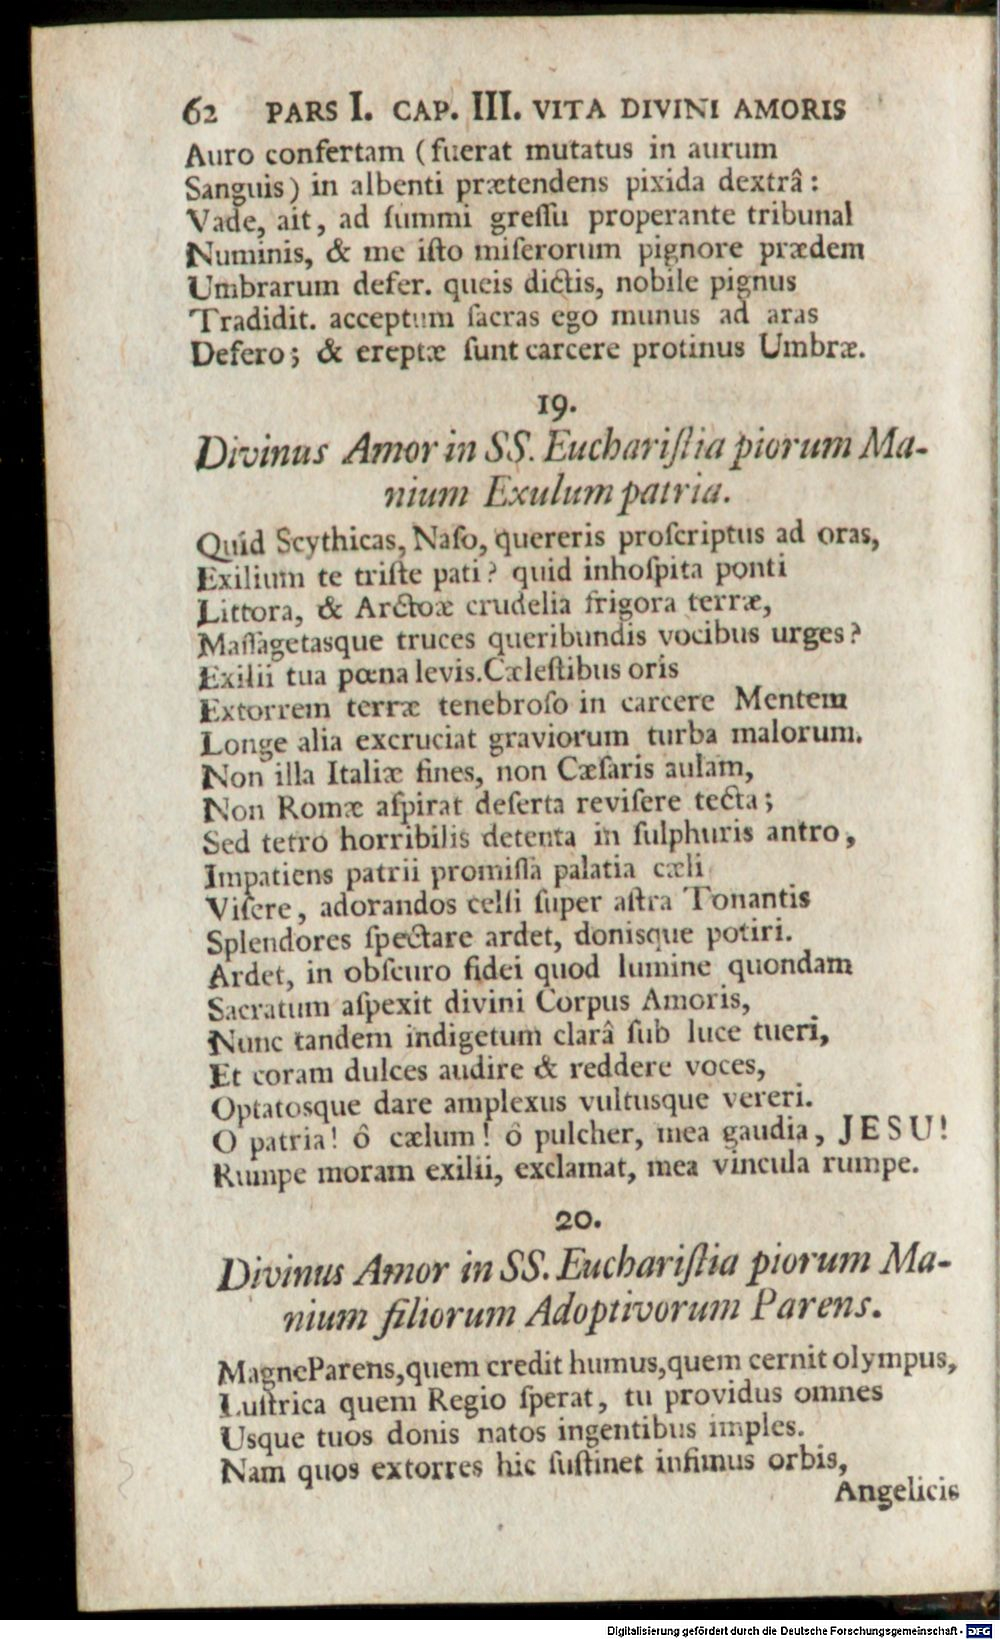 62 PARS I. CAP. III. VITA DIVINI AMORIS
Auro confertam (fuerat mutatus in aurum
Sanguis) in albenti prætendens pixida dextrâ:
Vade, ait, ad ſummi greſſu properante tribunal
Numinis, & me iſto miſerorum pignore prædem
Umbrarum defer. queis dictis, nobile pignus
Tradidit. acceptum ſacras ego munus ad aras
Defero; & ereptæ ſunt carcere protinus Umbræ.
19.
Divinus Amor in SS. Euchariſtia piorum Ma-
nium Exulum patria.
Quid Scythicas, Naſo, quereris proſcriptus ad oras,
Exilium te triſte pati? quid inhoſpita ponti
Littora, & Arctoæ crudelia frigora terræ,
Maſſagetasque truces queribundis vocibus urges?
Exilii tua pœna levis. Cæleſtibus oris
Extorrem terræ tenebroſo in carcere Mentem
Longe alia excruciat graviorum turba malorum.
Non illa Italiæ fines, non Cæſaris aulam,
Non Romæ aſpirat deſerta reviſere tecta;
Sed tetro horribilis detenta in ſulphuris antro,
Impatiens patrii promiſſa palatia cæli
Viſere, adorandos celſi ſuper aſtra Tonantis
Splendores ſpectare ardet, donisque potiri.
Ardet, in obſcuro fidei quod lumine quondam
Sacratum aſpexit divini Corpus Amoris,
Nunc tandem indigetum clarâ ſub luce tueri,
Et coram dulces audire & reddere voces,
Optatosque dare amplexus vultusque vereri.
O patria! ô cælum! ô pulcher, mea gaudia, JESU!
Rumpe moram exilii, exclamat, mea vincula rumpe.
20.
Divinus Amor in SS. Euchariſtia piorum Ma-
nium filiorum Adoptivorum Parens.
Magne Parens, quem credit humus, quem cernit olympus,
Luſtrica quem Regio ſperat, tu providus omnes
Usque tuos donis natos ingentibus imples.
Nam quos extorres hic ſuſtinet infimus orbis,
Angelicis
Digitalisierung gefördert durch die Deutsche Forschungsgemeinschaft - DFG